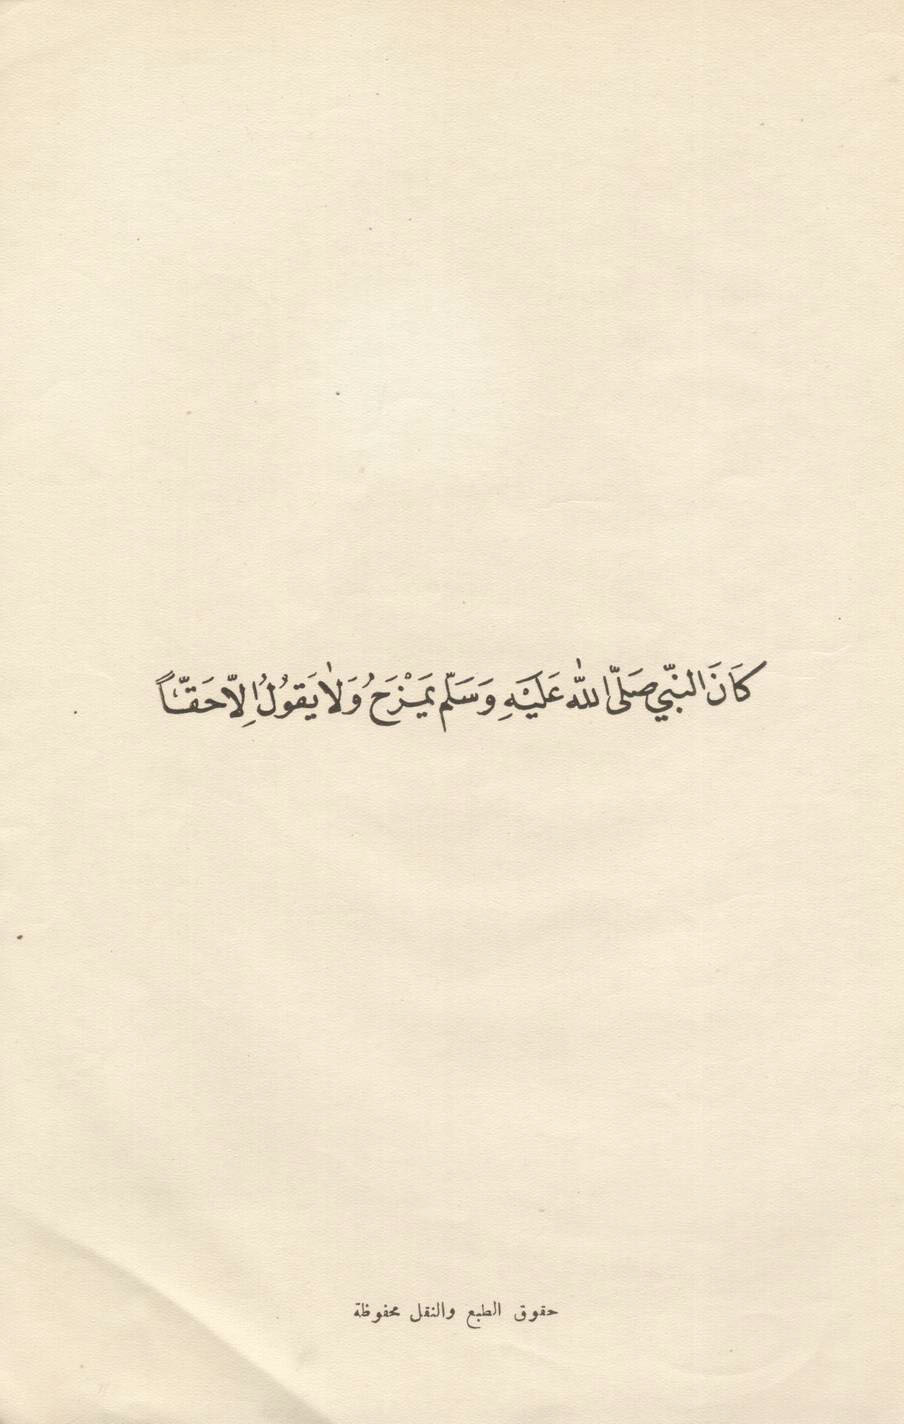 كَانَ النبّي صَلّى اللّٰه عَلَيْهِ وَسَلّم يَمْزَحُ وَلاٰ يَقوُلُ اِلاّ حَقّاً
حقوق الطبع والنقل محفوظة